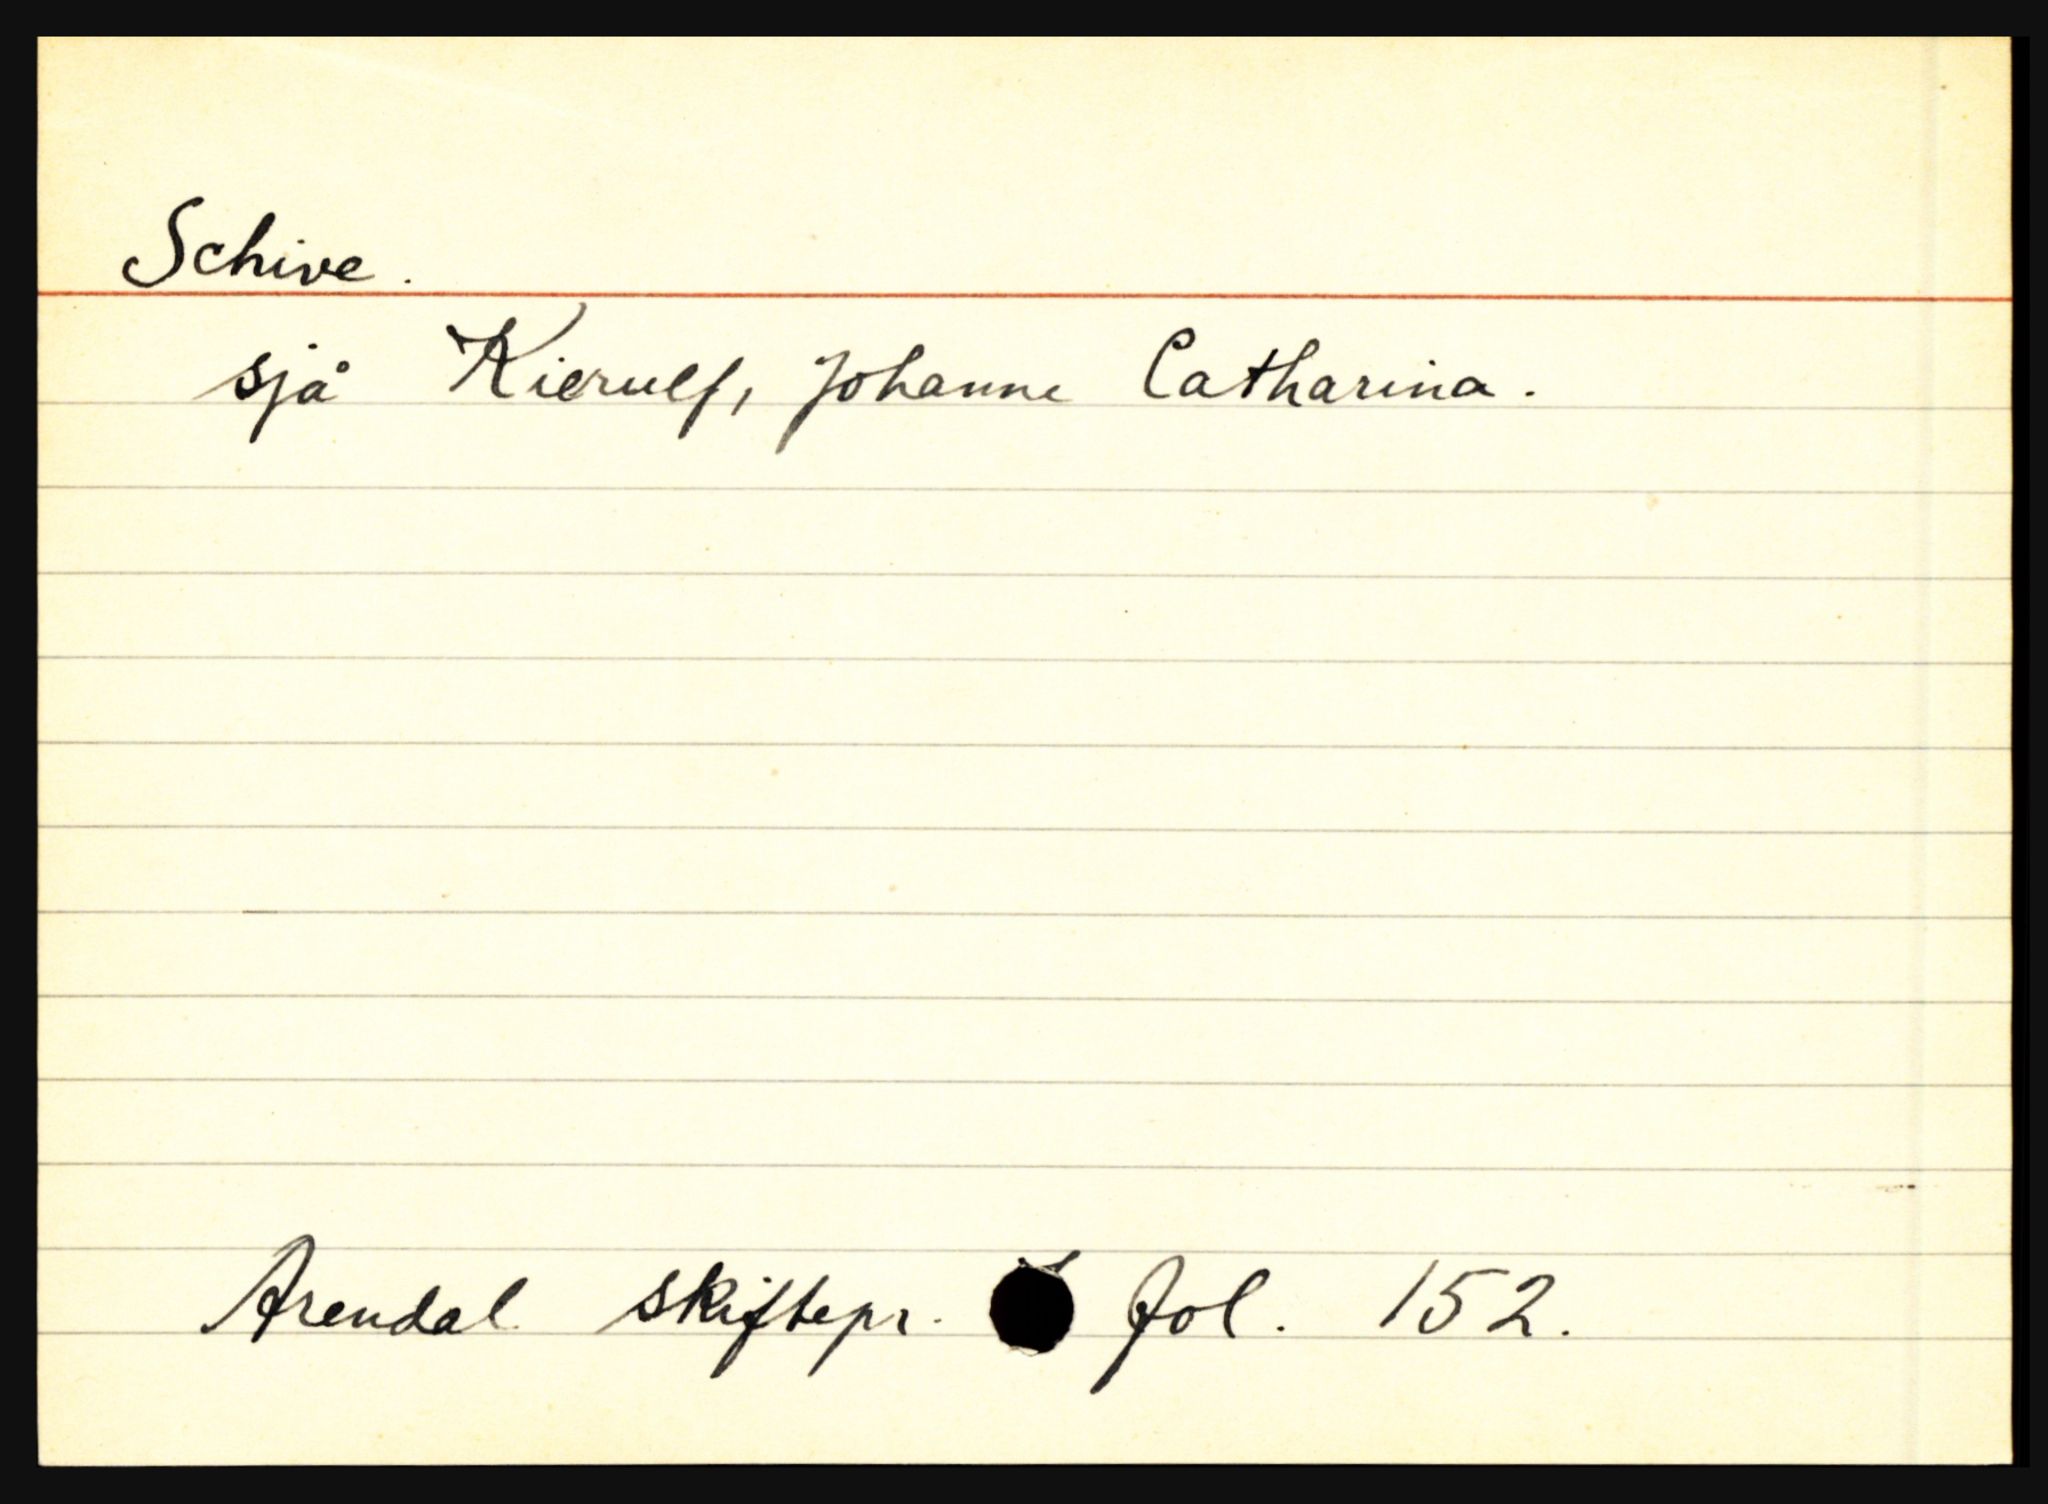 Schive.
sjå Kierulf, Johanne Catharina.
Arendal skiftepr. fol. 152.